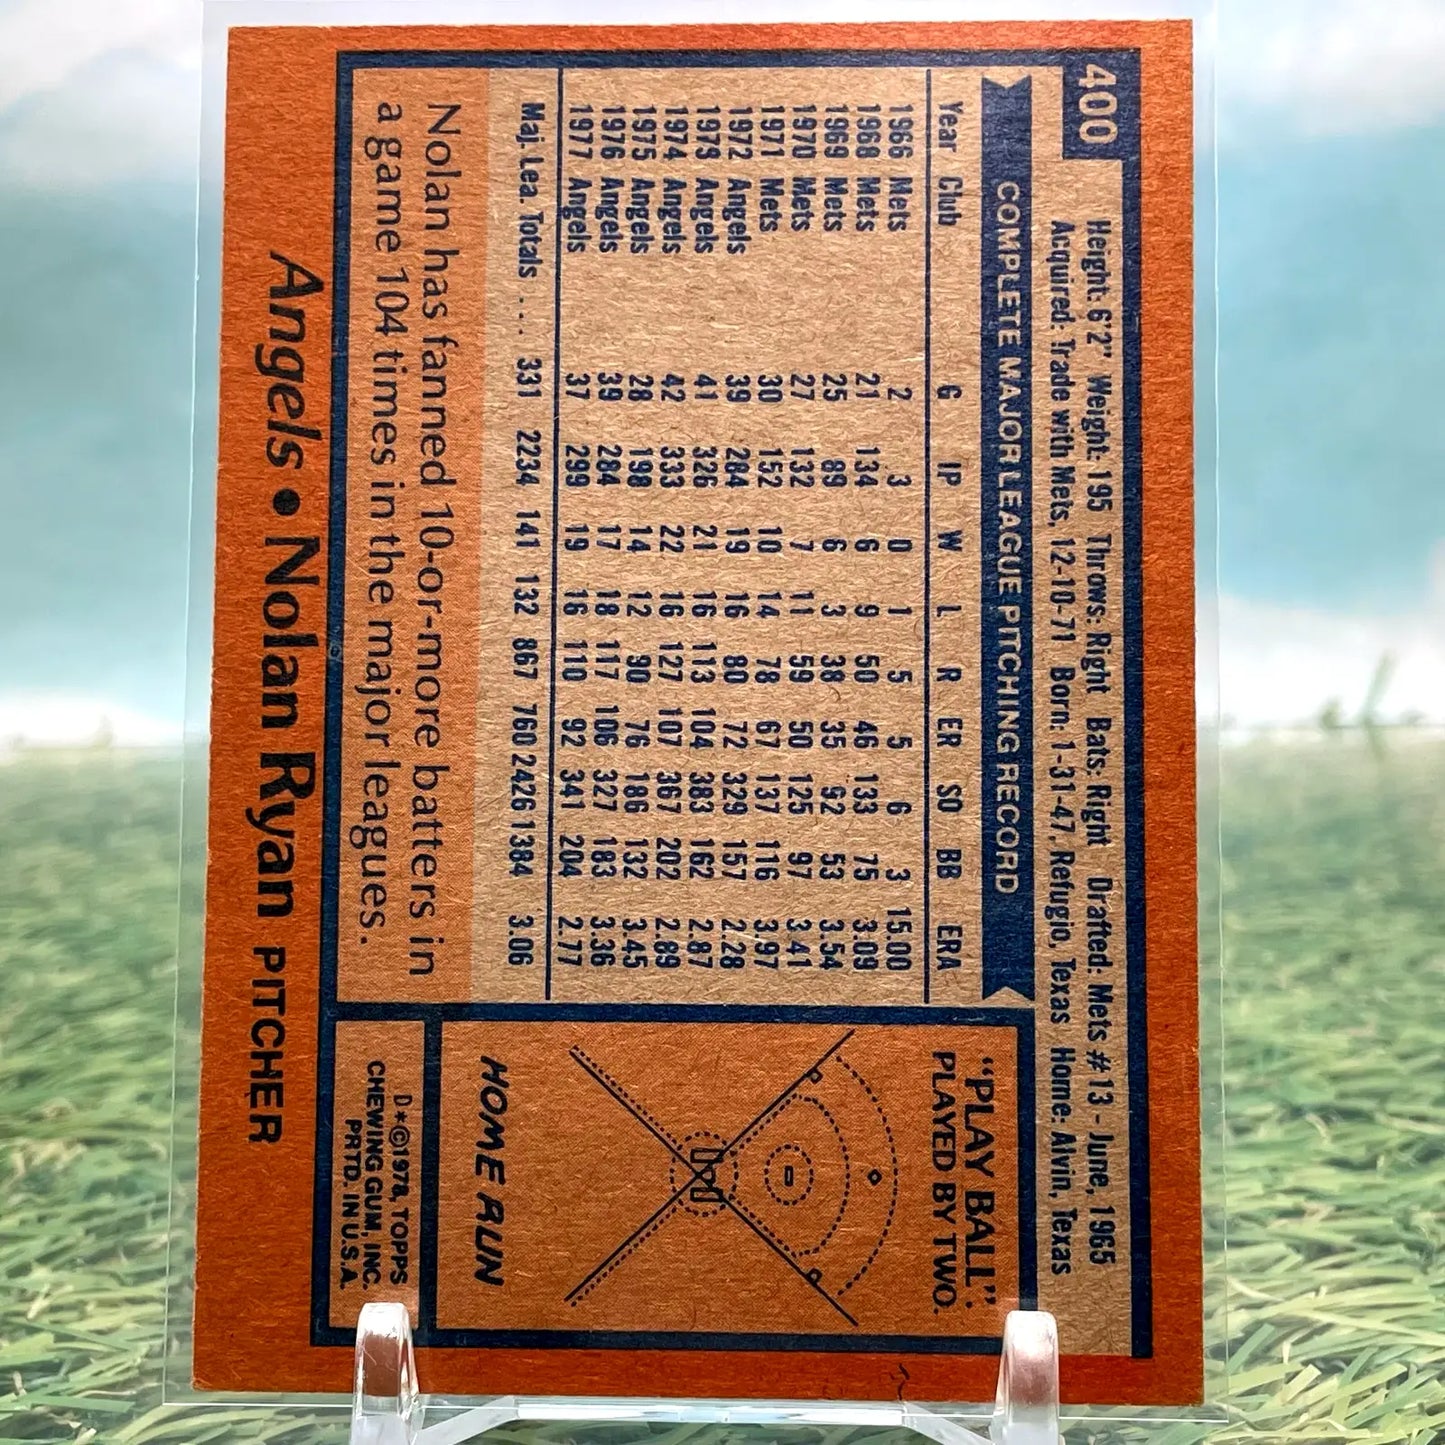 400
Height: 6'2" Weight: 195 Throws: Right Bats: Right Drafted: Mets #13 - June, 1965
Acquired: Trade with Mets, 12-10-71 Born: 1-31-47, Refugio, Texas Home: Alvin, Texas
COMPLETE MAJOR LEAGUE PITCHING RECORD
Year Club G IP W L R ER SO BB ERA
1966 Mets 2 3 0 1 5 5 6 3 15.00
1968 Mets 21 134 6 9 50 46 133 75 3.09
1969 Mets 25 89 6 3 38 35 92 53 3.54
1970 Mets 27 132 7 11 59 50 125 97 3.41
1971 Mets 30 152 10 14 78 67 137 116 3.97
1972 Angels 39 284 19 16 80 72 329 157 2.28
1973 Angels 41 326 21 16 113 104 383 162 2.87
1974 Angels 42 333 22 16 127 107 367 202 2.89
1975 Angels 28 198 14 12 90 76 186 132 3.45
1976 Angels 39 284 17 18 117 106 327 183 3.36
1977 Angels 37 299 19 16 110 92 341 204 2.77
Maj. Lea. Totals .... 331 2234 141 132 867 760 2426 1384 3.06
Nolan has fanned 10-or-more batters in
a game 104 times in the major leagues.
"PLAY BALL":
PLAYED BY TWO.
HOME RUN
D*©1978, TOPPS
CHEWING GUM, INC.
PRTD. IN U.S.A.
Angels • Nolan Ryan PITCHER